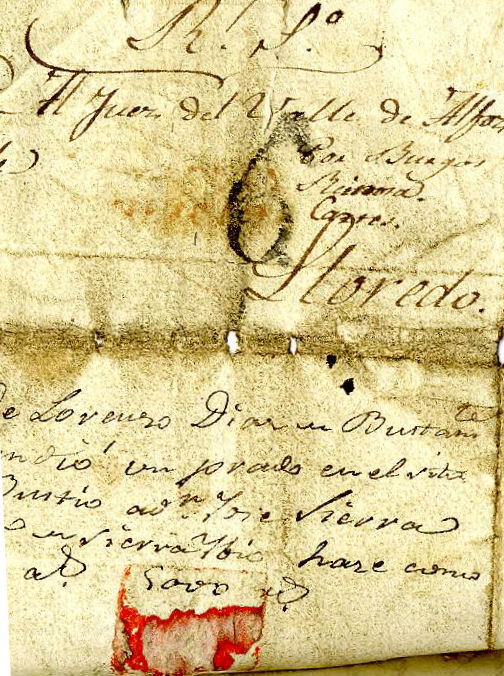 R.l S.o
Al Juez del Valle de Alfoz
Por Burgos
Reinosa.
Cartes.
6
Lloredo.
de Lorenzo Diaz en Bustamte
un prado en el sitio
Bustio a dn Jose Sierra
en Sierra Ibio hace como